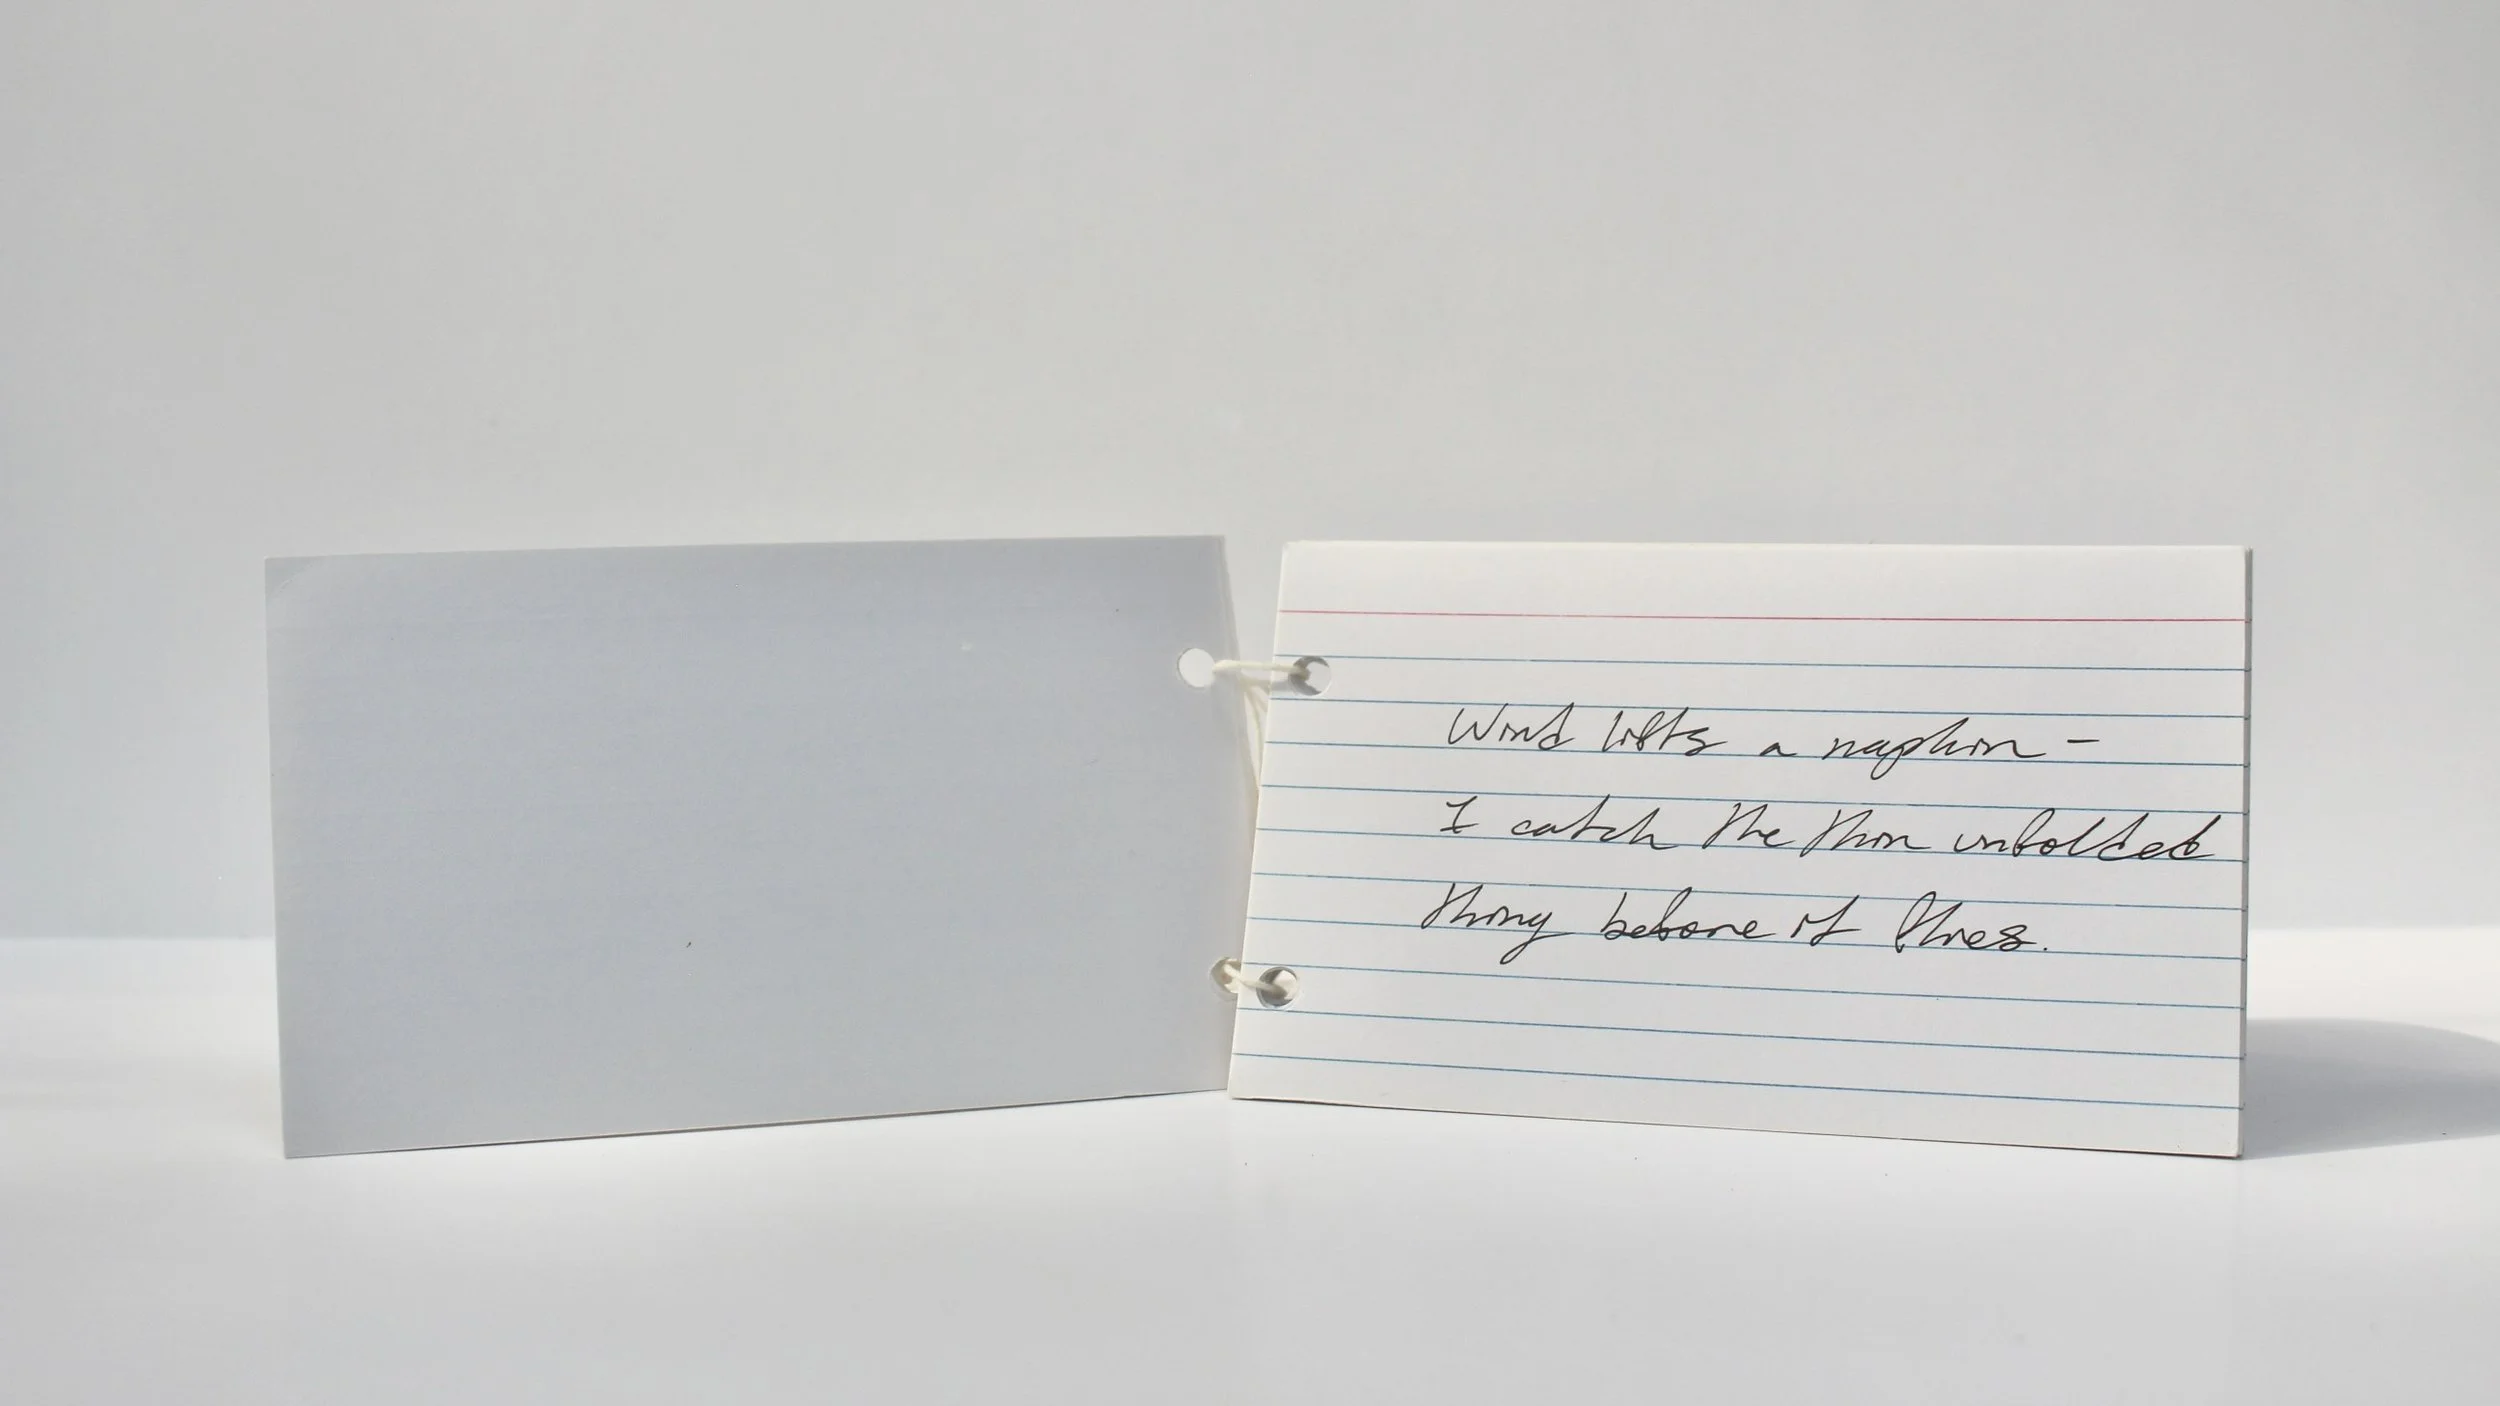 Wind lifts a napkin –
I catch the thin unfolded
thing before it flies.